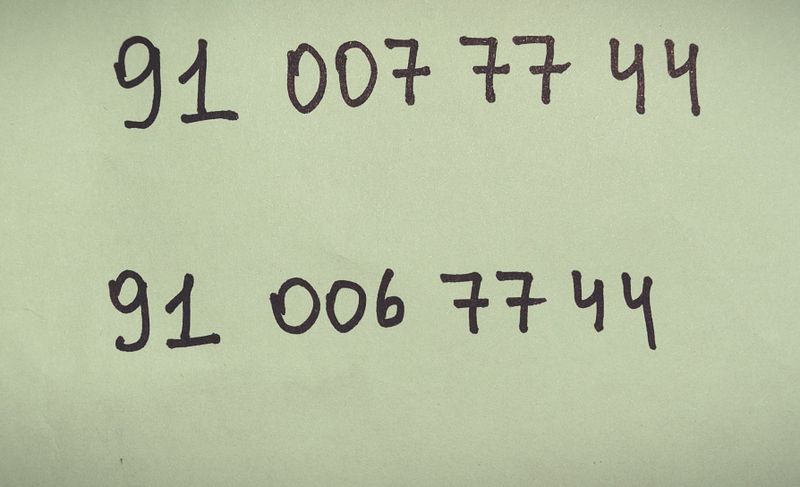 91 007 77 44
91 006 77 44